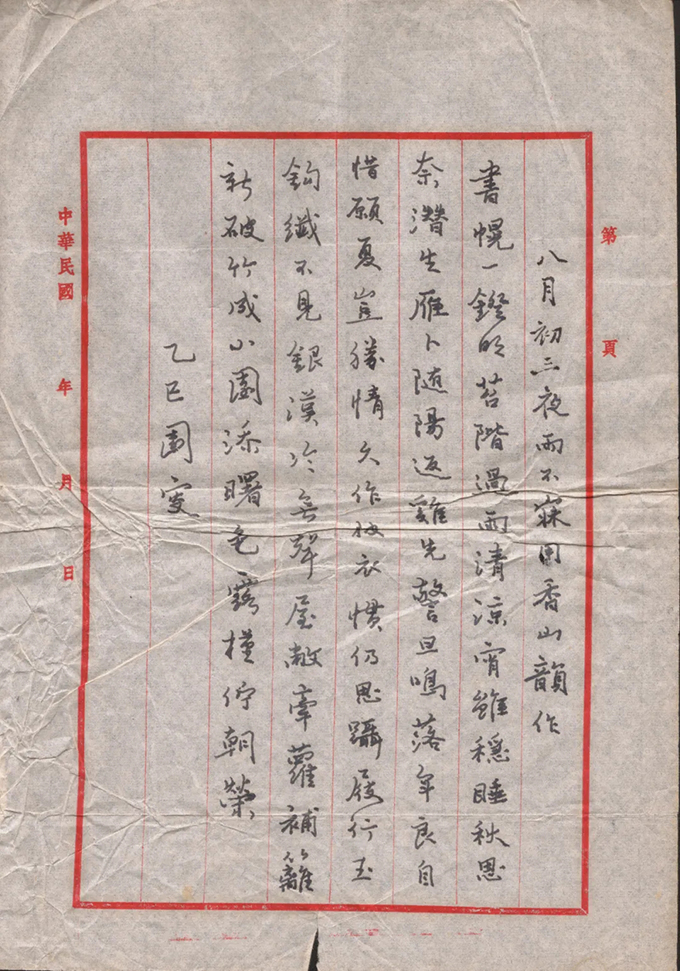 第 頁
八月初三夜雨不寐用香山韻作
書幌一鐙明苔階過雨清涼宵雖穩睡秋思
奈潛生雁卜随陽返雞先警旦鳴落年良自
惜願豈勝情久作披衣慣仍思躡屐行玉
鈎纖不見銀漢冷無聲屋敝牽蘿補籬
新破竹成小園添曙色露槿佇朝榮
乙巳叟
中華民國 年 月 日